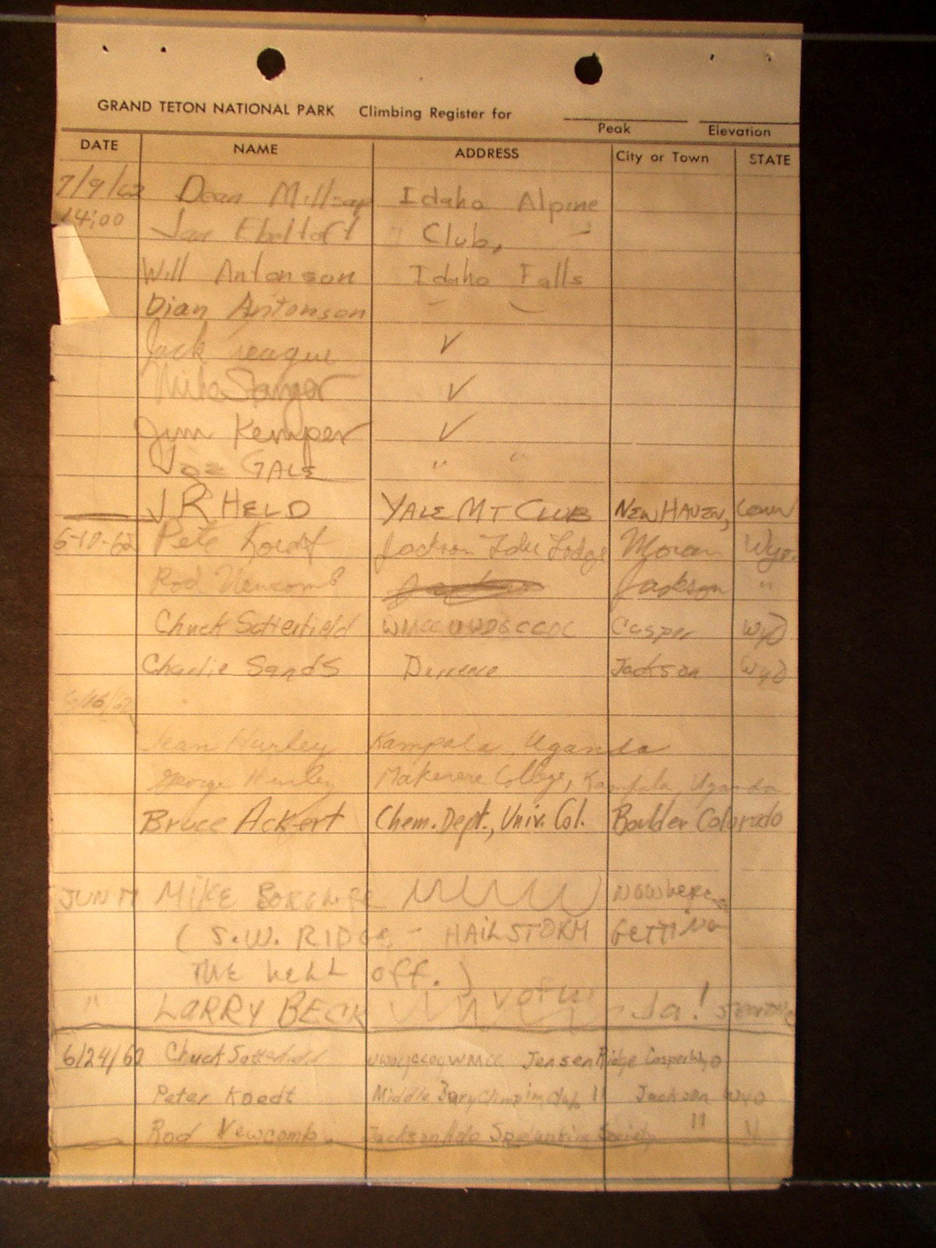 GRAND TETON NATIONAL PARK Climbing Register for
Peak Elevation
DATE NAME ADDRESS City or Town STATE
7/9/62 Dean Millsap Idaho Alpine
14:00 Club,
Will Antonson Idaho Falls
Dian Antonson
Jack ✓
Mike ✓
Jim Kemper ✓
Joe GALE " "
J.R HELD YALE MT CLUB NEW HAVEN, Conn
6-10-62 Pete Jackson Lodge Moran Wyo.
Rod Newcomb Jackson "
Chuck Satterfield Casper Wyo
Charlie Sands Jackson Wyo
6/16/62
Jean Hurley Kampala, Uganda
George Hurley Makerere College, Kampala, Uganda
Bruce Ackert Chem. Dept., Univ. Col. Boulder Colorado
JUN 17 MIKE Nowhere
(S.W. RIDGE - HAILSTORM GETTING
THE HELL OFF.)
" LARRY BECK Ja!
6/24/62 Chuck Satterfield Jensen Ridge Casper Wyo
Peter Koedt Middle Club " Jackson Wyo
Rod Newcomb Society " "